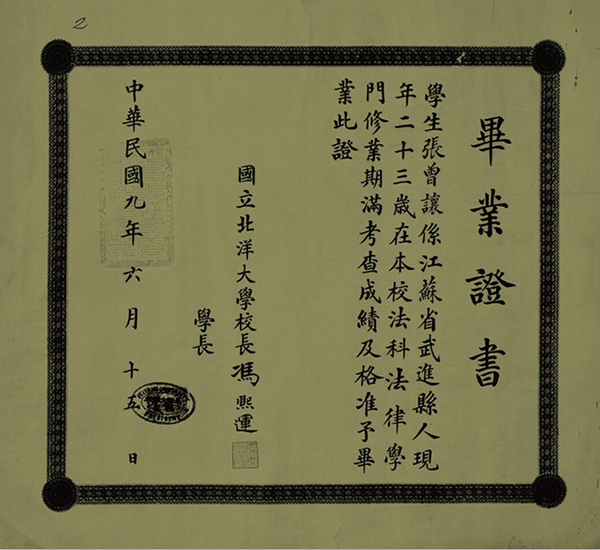 2
畢業證書
學生張曾讓係江蘇省武進縣人現
年二十三歲在本校法科法律學
門修業期滿考查成績及格准予畢
業此證
國立北洋大學校長馮熙運
學長
中華民國九年六月十五日